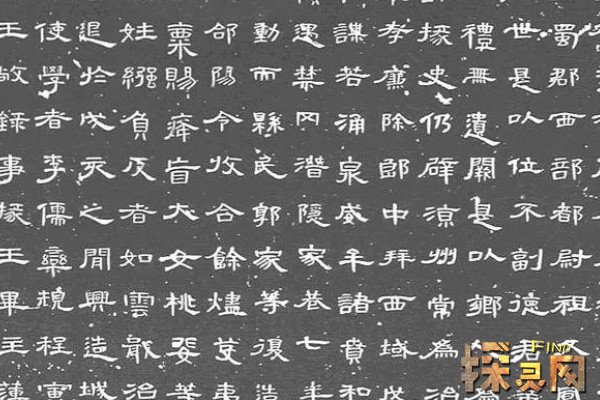 蜀郡西部都尉祖父鳳
世是以位不副德君
禮無遺闕是以鄉人為
掾史仍辟涼州常為治
孝廉除郎中拜西域戊
謀若涌泉威牟諸賁和
遇禁冈潛隱家巷七年
動而縣民郭家等復造
郃陽令收合餘燼芟夷
稟賜癃盲大女桃婓等
姓繈負反者如雲戢治
退於戌亥之間興造城
使學者李儒欒規程寅
王敞錄事掾王畢主簿
FIND
探灵网